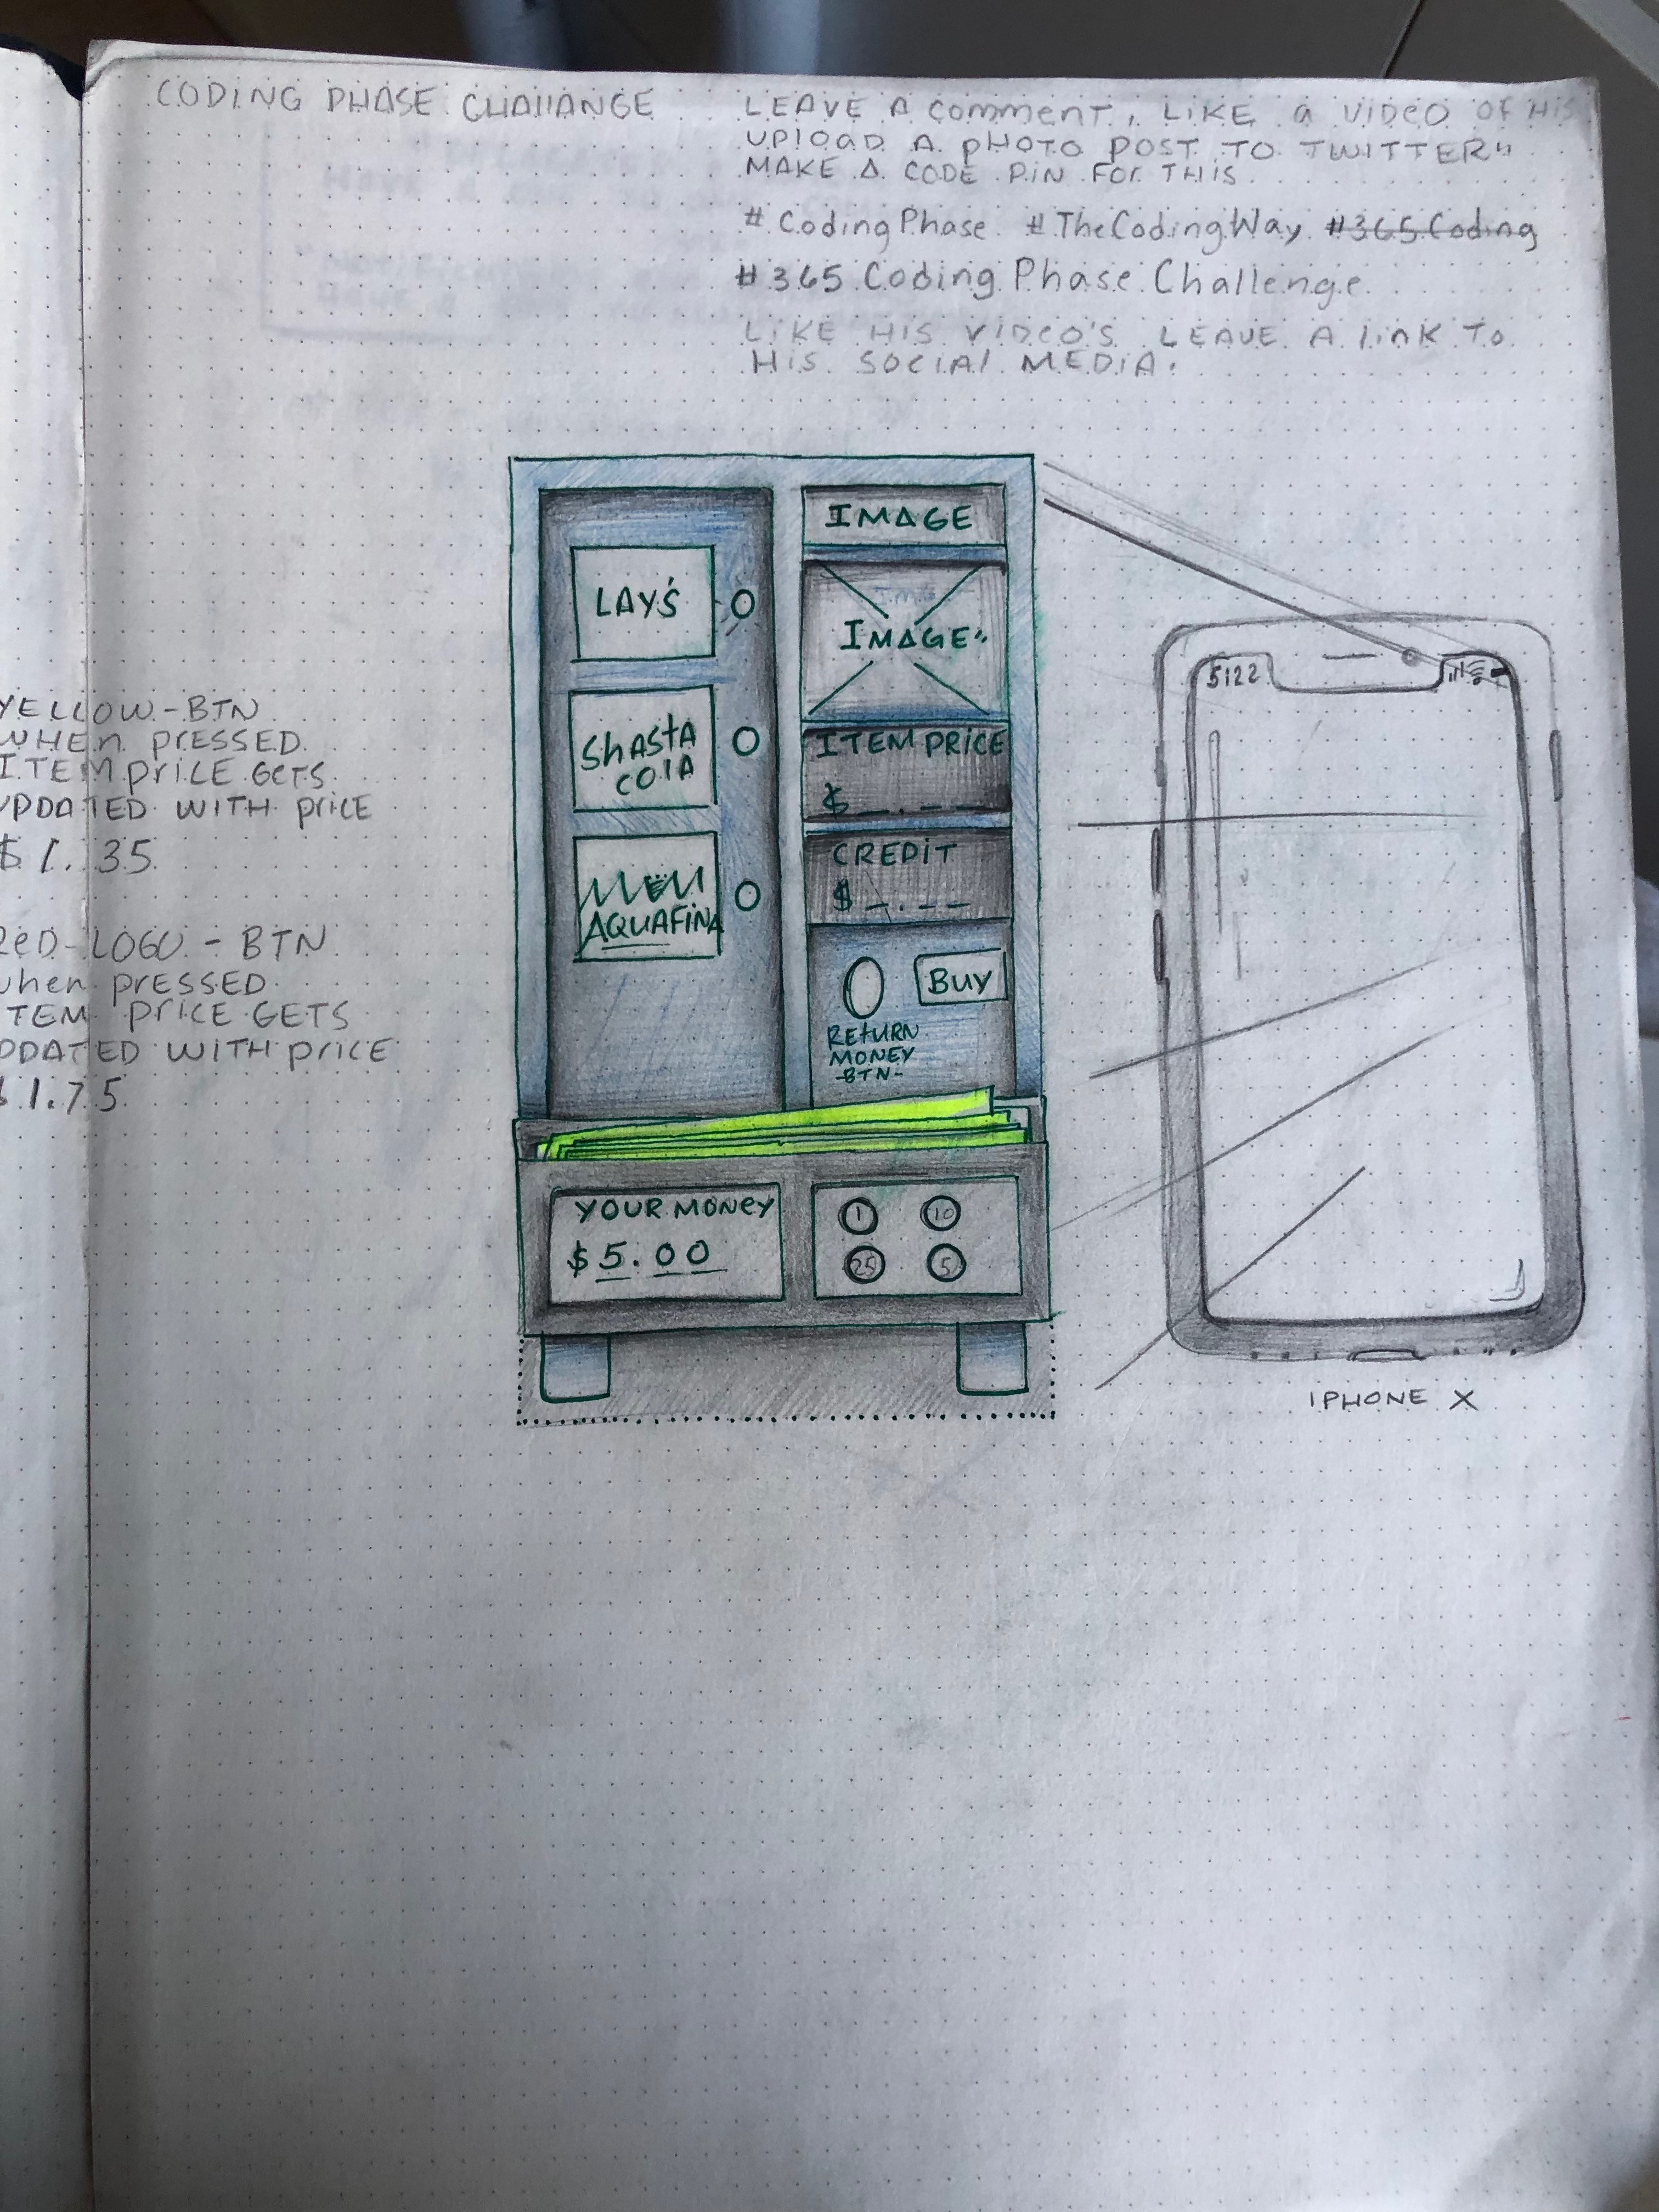 CODING PHASE CHAllANGE
LEAVE A comment, LIKE a VIDEO OF HIS
UPlOAD A pHOTO POST TO TWITTER"
MAKE A CODE PIN FOr THIS
# CodingPhase #TheCodingWay #365 Coding
#365 Coding Phase Challenge
LIKE HIS VIDEO'S LEAVE A link To
HIS SOCIAl MEDIA.
YELLOW-BTN
WHEn prESSED
ITEM prICE GETS
UPDATED WITH pricE
$ 1.35
RED-LOGO-BTN
when prESSED
ITEM PrICE GETS
UPDATED WITH pricE
$ 1.75
LAY'S
ShAStA
COlA
AQUAFINA
IMAGE
IMAGE"
ITEM PRICE
$ _ . _ _
CREDIT
$ _ . _ _
BUY
RETURN
MONEY
-BTN-
YOUR MONEY
$5.00
1 10
25 5
5:22
IPHONE X